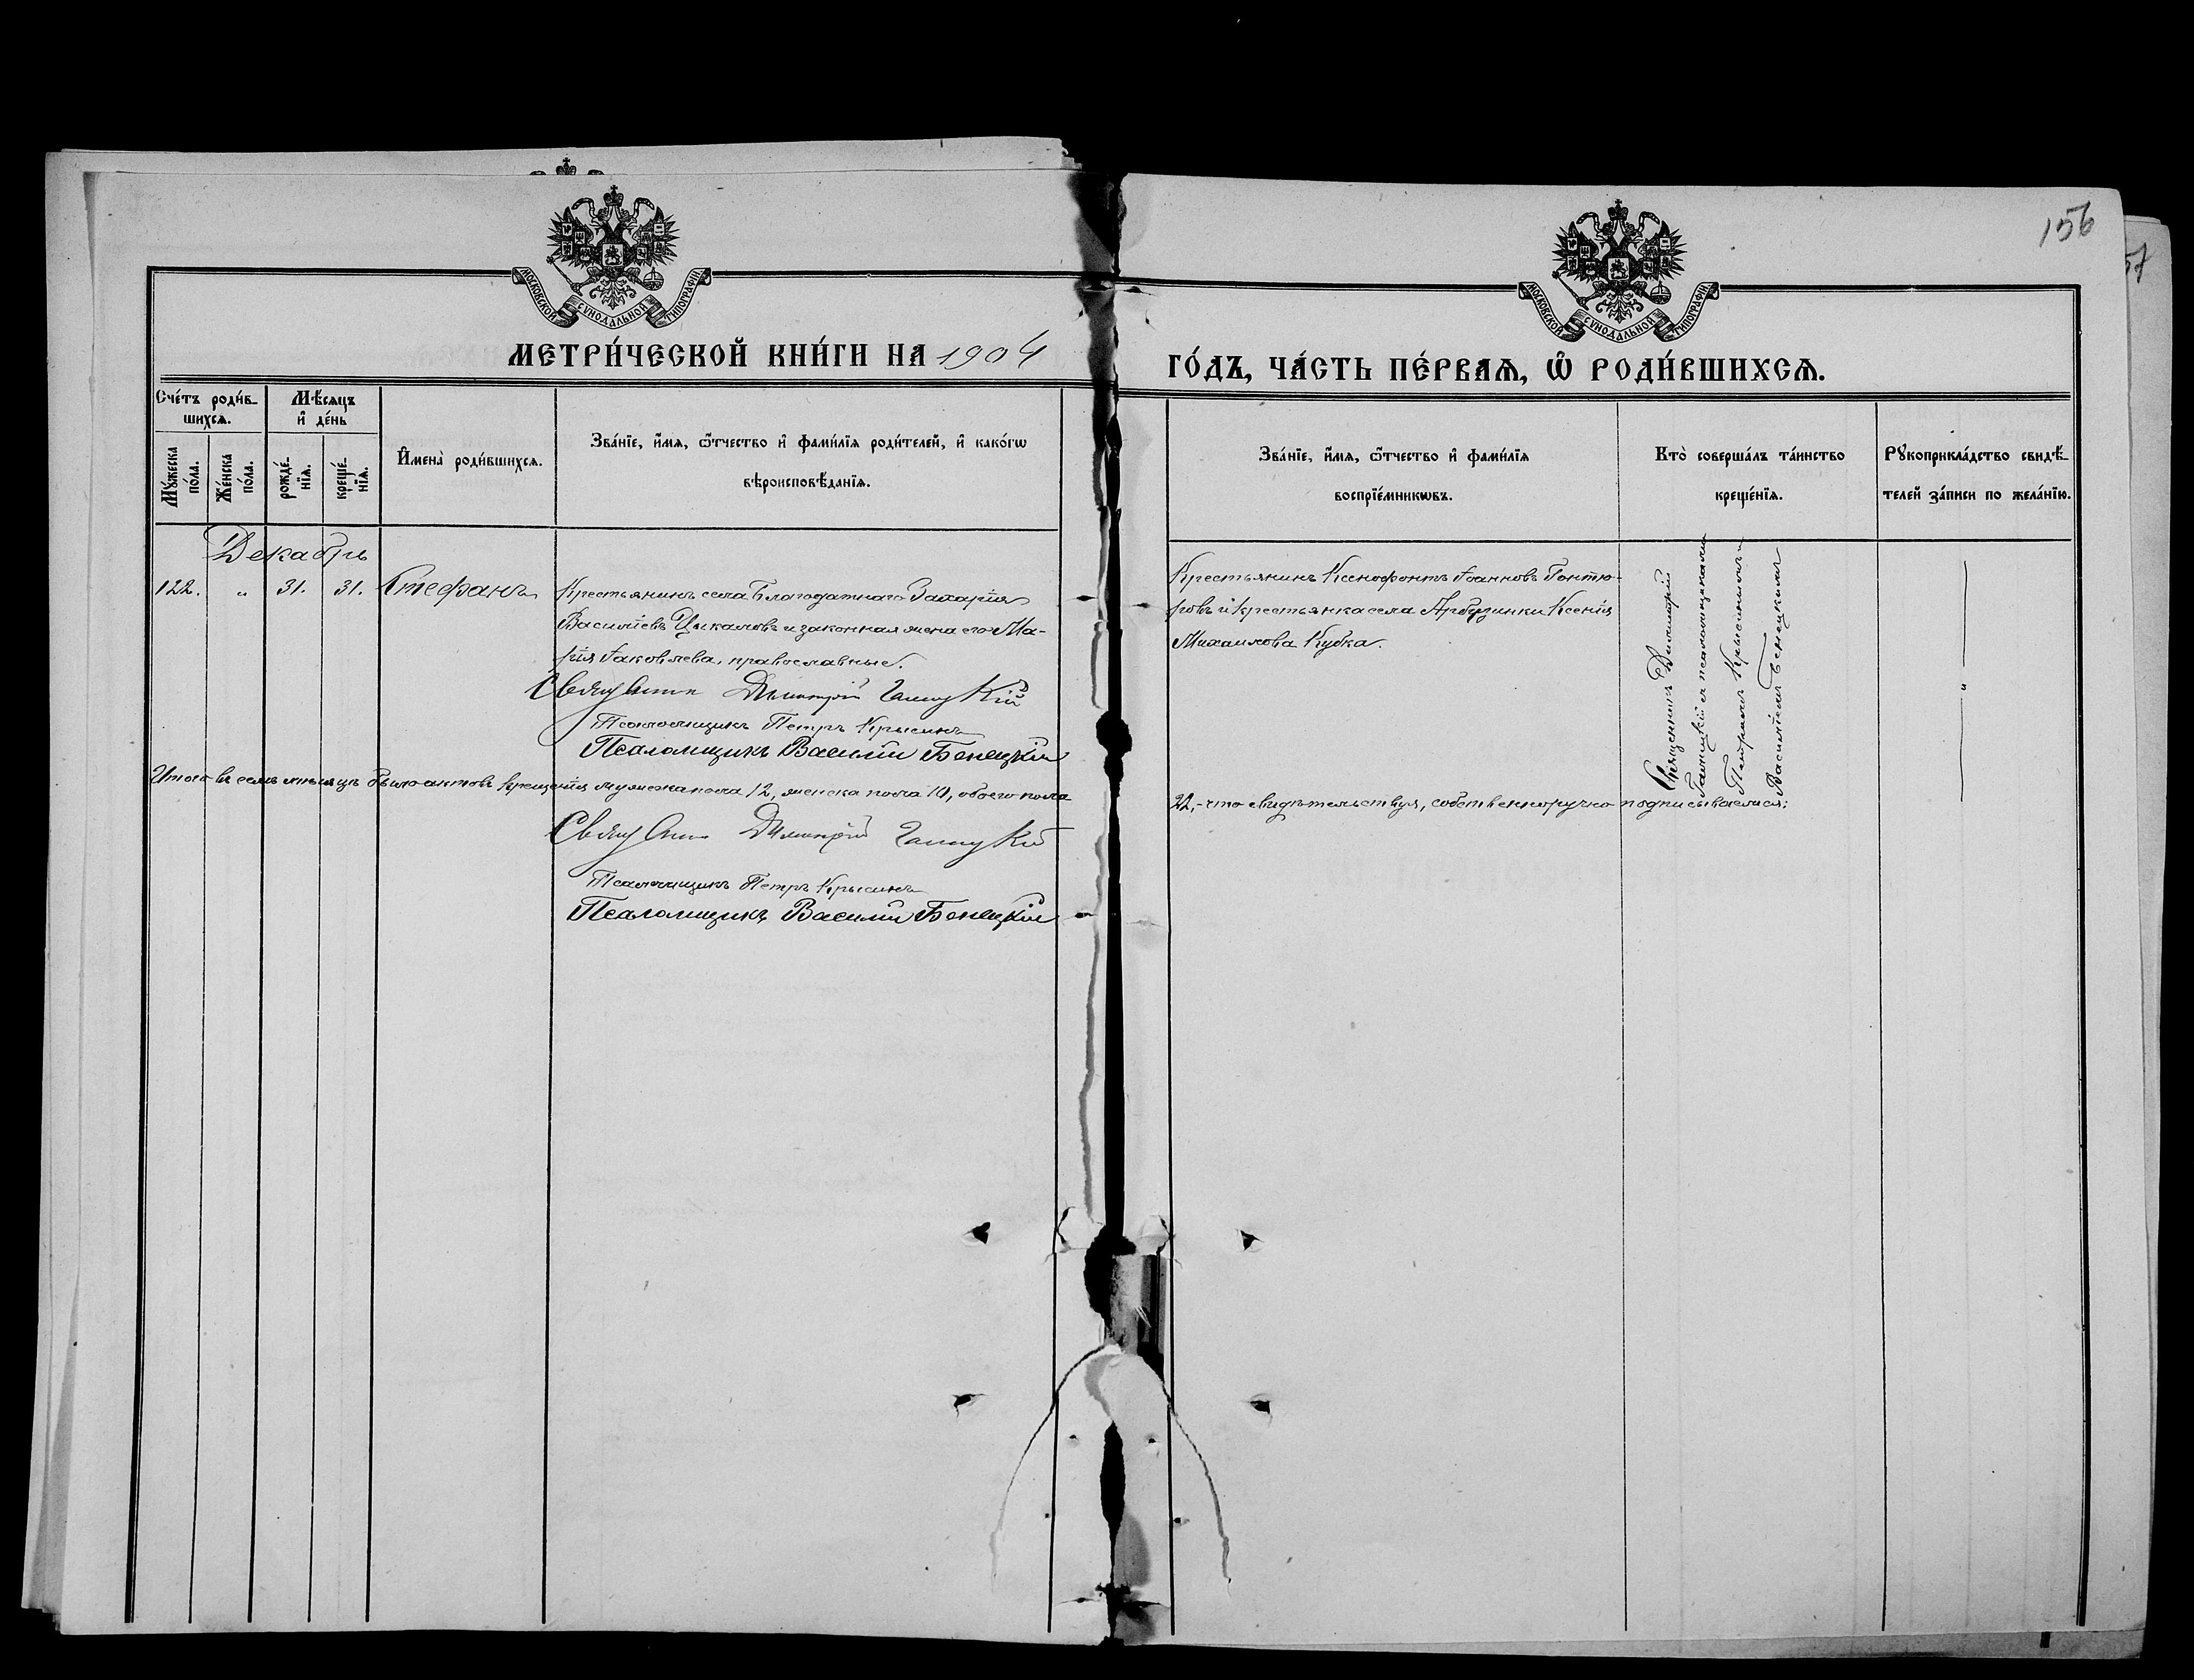 156
57
МОСКОВСКОЙ СѴНОДАЛЬНОЙ ТИПОГРАФІИ
МОСКОВСКОЙ СѴНОДАЛЬНОЙ ТИПОГРАФІИ
МЕТРИ́ЧЕСКОЙ КНИ́ГИ НА 1904
ГО́ДЪ, ЧА́СТЬ ПЕ́РВАѦ, Ѡ҆ РОДИ́ВШИХСѦ.
Сче́тъ роди́в-
шихсѧ.
Мѣ́сѧцъ
и҆ де́нь
Мꙋ́жеска
по́ла.
Же́нска
по́ла.
рожде́-
нїѧ.
креще́-
нїѧ.
И҆мена̀ роди́вшихсѧ.
Зва́нїе, и҆́мѧ, ѻ҆́тчество и҆ фами́лїѧ роди́телей, и҆ како́гѡ
вѣроисповѣ́данїѧ.
Зва́нїе, и҆́мѧ, ѻ҆́тчество и҆ фами́лїѧ
воспрїе́мникѡвъ.
Кто̀ соверша́лъ та́инство
креще́нїѧ.
Рꙋкоприкла́дство свидѣ́-
телей за́писи по жела́нїю.
Декабрь
122. " 31. 31. Стефанъ
Крестьянинъ села Благодатнаго Захарія
Василіевъ Цыкаловъ и законная жена его Ма-
рія Іаковлева, православные.
Священникъ Димитрій Галицкій
Псаломщикъ Петръ Крысинъ
Псаломщикъ Василій Бенецкій
Крестьянинъ Ксенофонтъ Іоанновъ Гонтю-
ровъ и крестьянка села Арбузинки Ксенія
Михаилова Кубка.
Священникъ Димитрій
Галицкій съ псаломщиками
Петромъ Крысинымъ и
Василіемъ Бенецкимъ
"
Итого въ семъ мѣсяцѣ было актовъ крещенія мужеска пола 12, женска пола 10, обоего пола
22, - что свидѣтельствуя, собственноручно подписываемся:
Священникъ Димитрій Галицкій
Псаломщикъ Петръ Крысинъ
Псаломщикъ Василій Бенецкій